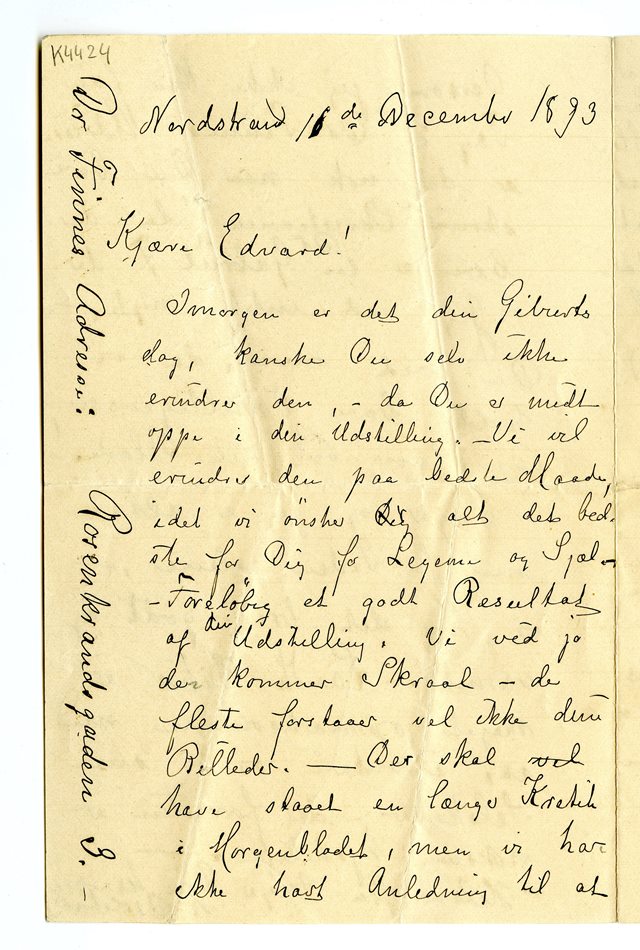 K4424
Nordstrand 11de December 1893
Kjære Edvard!
Imorgen er det din Geburts
dag, kanske Du selv ikke
erindrer den, - da Du er midt
oppe i din Udstilling. - Vi vil
erindrer den paa bedste Maade,
idet vi önske Dig alt det bed-
ste for Dig for Legeme og Sjæl -
- Foreløbig et godt Resultat
af din Udstilling. Vi ved jo
der kommer Skraal - de
fleste forstaaer vel ikke dine
Billeder. — Der skal vel
have staaet en længer Kritik
i Morgenbladet, men vi har
ikke havt Anledning til at
Dr Finnes Adresse: Rosenkrandsgaden 3. -